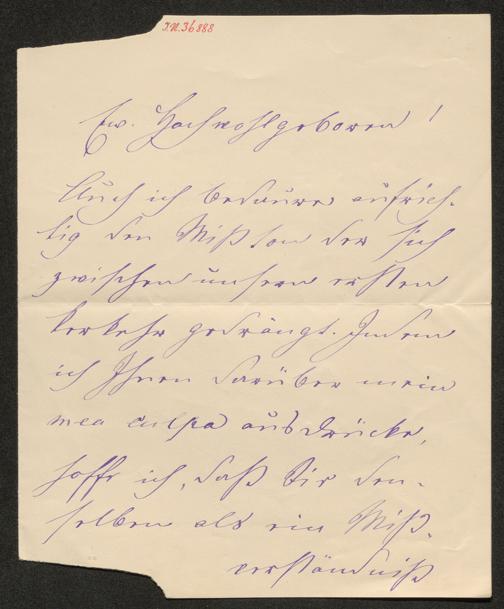 I.N. 36888
Ew. Hochwohlgeboren!
Auch ich bedaure aufrich-
tig den Mißton der sich
zwischen unsern ersten
Verkehr gedrängt. Indem
ich Ihnen darüber mein
mea culpa ausdrücke,
hoffe ich, daß Sie den-
selben als ein Miß-
verständniß